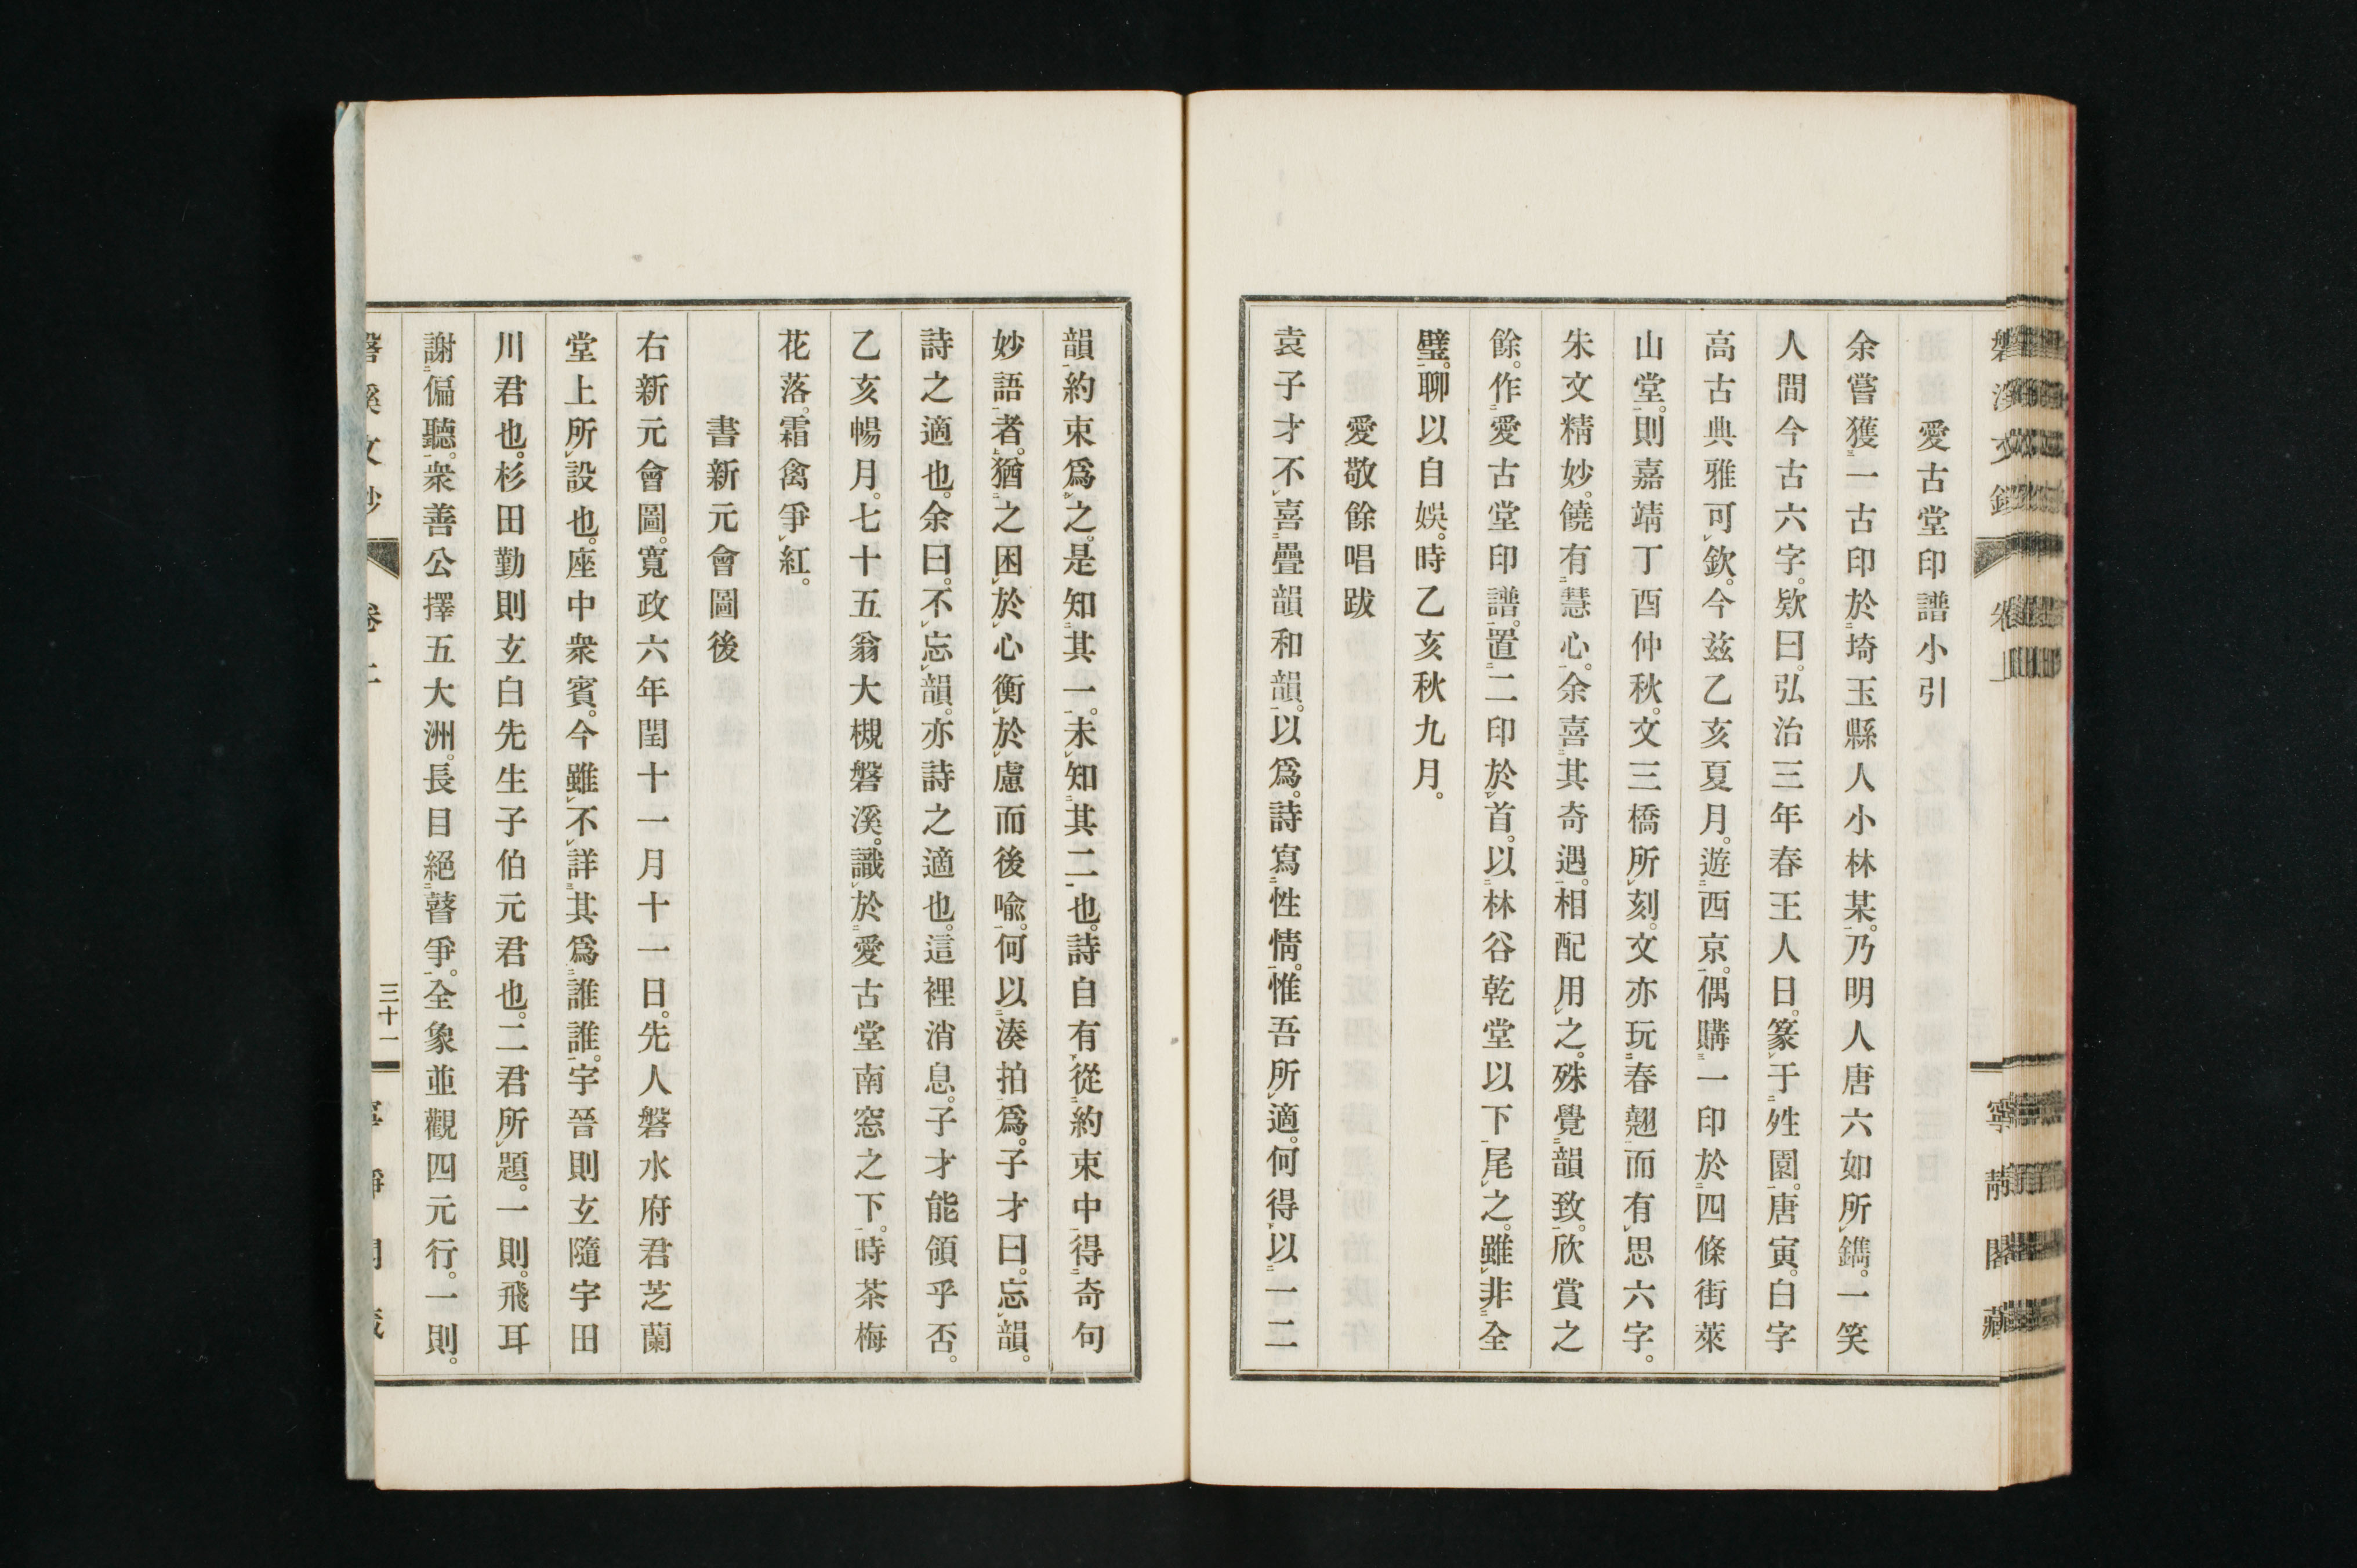 愛古堂印譜小引
余嘗獲一古印於埼玉縣人小林某。乃明人唐六如所鐫。一笑
人間今古六字。欵曰。弘治三年春王人日。篆于姓園。唐寅。白字
高古典雅可欽。今玆乙亥夏月。遊西京。偶購一印於四條街萊
山堂。則嘉靖丁酉仲秋。文三橋所刻。文亦玩春翹而有思六字。
朱文精妙。饒有慧心。余喜其奇遇。相配用之。殊覺韻致。欣賞之
餘。作愛古堂印譜。置二印於首。以林谷乾堂以下尾之。雖非全
璧。聊以自娛。時乙亥秋九月。
愛敬餘唱跋
袁子才不喜疊韻和韻。以爲。詩寫性情。惟吾所適。何得以一二
韻約束爲之。是知其一。未知其二也。詩自有從約束中得奇句
妙語者。猶之困於心衡於慮而後喩。何以湊拍爲。子才曰。忘韻。
詩之適也。余曰。不忘韻。亦詩之適也。這裡消息。子才能領乎否。
乙亥暢月。七十五翁大槻磐溪。識於愛古堂南窓之下。時茶梅
花落。霜禽爭紅。
書新元會圖後
右新元會圖。寬政六年閏十一月十一日。先人磐水府君芝蘭
堂上所設也。座中衆賓。今雖不詳其爲誰誰。字晉則玄隨宇田
川君也。杉田勤則玄白先生子伯元君也。二君所題。一則。飛耳
謝偏聽。衆善公擇五大洲。長目絕瞽爭。全象並觀四元行。一則。
三十一